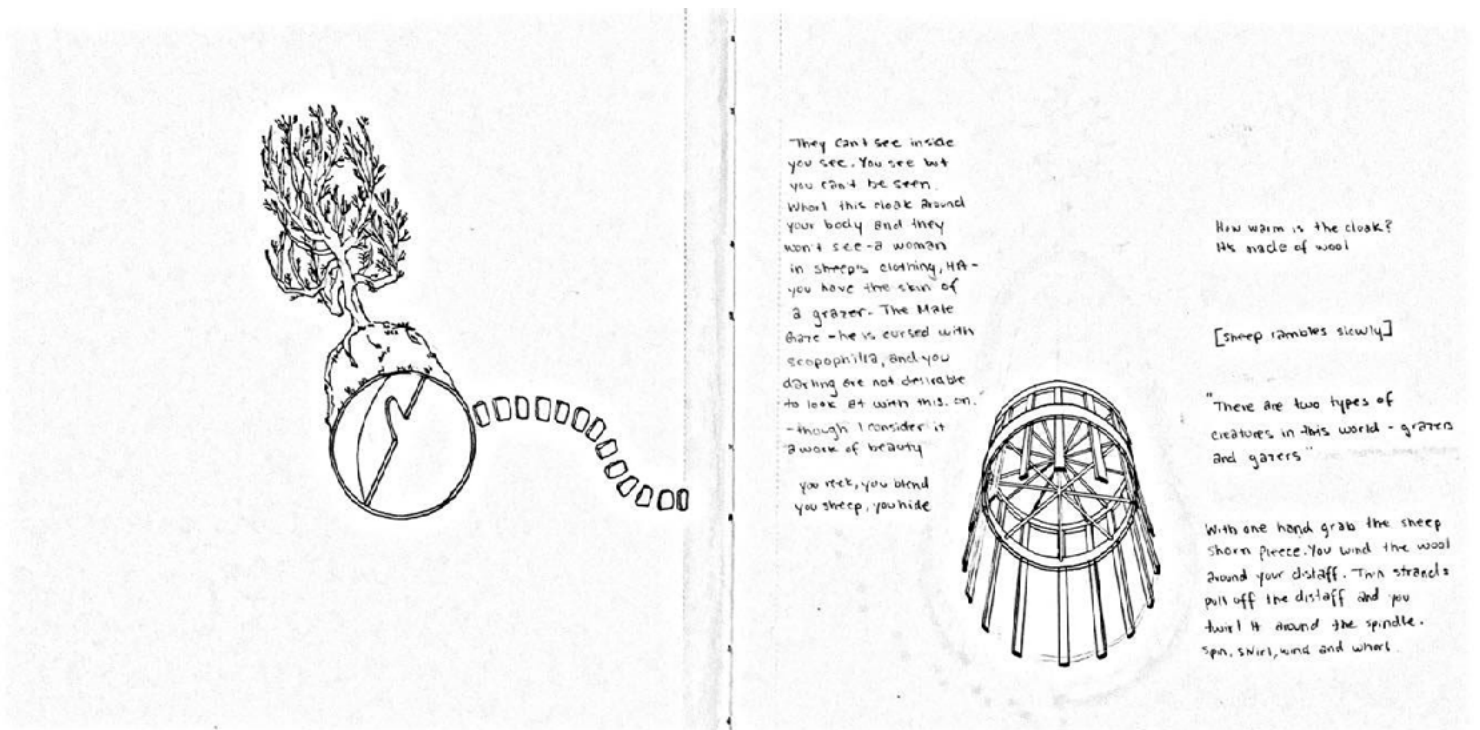 They can't see inside
you see. You see but
you can't be seen.
Whorl this cloak around
your body and they
won't see - a woman
in sheep's clothing, HA -
you have the skin of
a grazer. The Male
Gaze - he is cursed with
scopophilia, and you
darling are not desirable
to look at with this on."
- though I consider it
a work of beauty
you reek, you blend
you sheep, you hide
How warm is the cloak?
It's made of wool
[sheep rambles slowly]
"There are two types of
creatures in this world - grazers
and gazers"
With one hand grab the sheep
shorn fleece. You wind the wool
around your distaff. Thin strands
pull off the distaff and you
twirl it around the spindle.
Spin, swirl, wind and whorl.